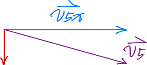 V5x
V5